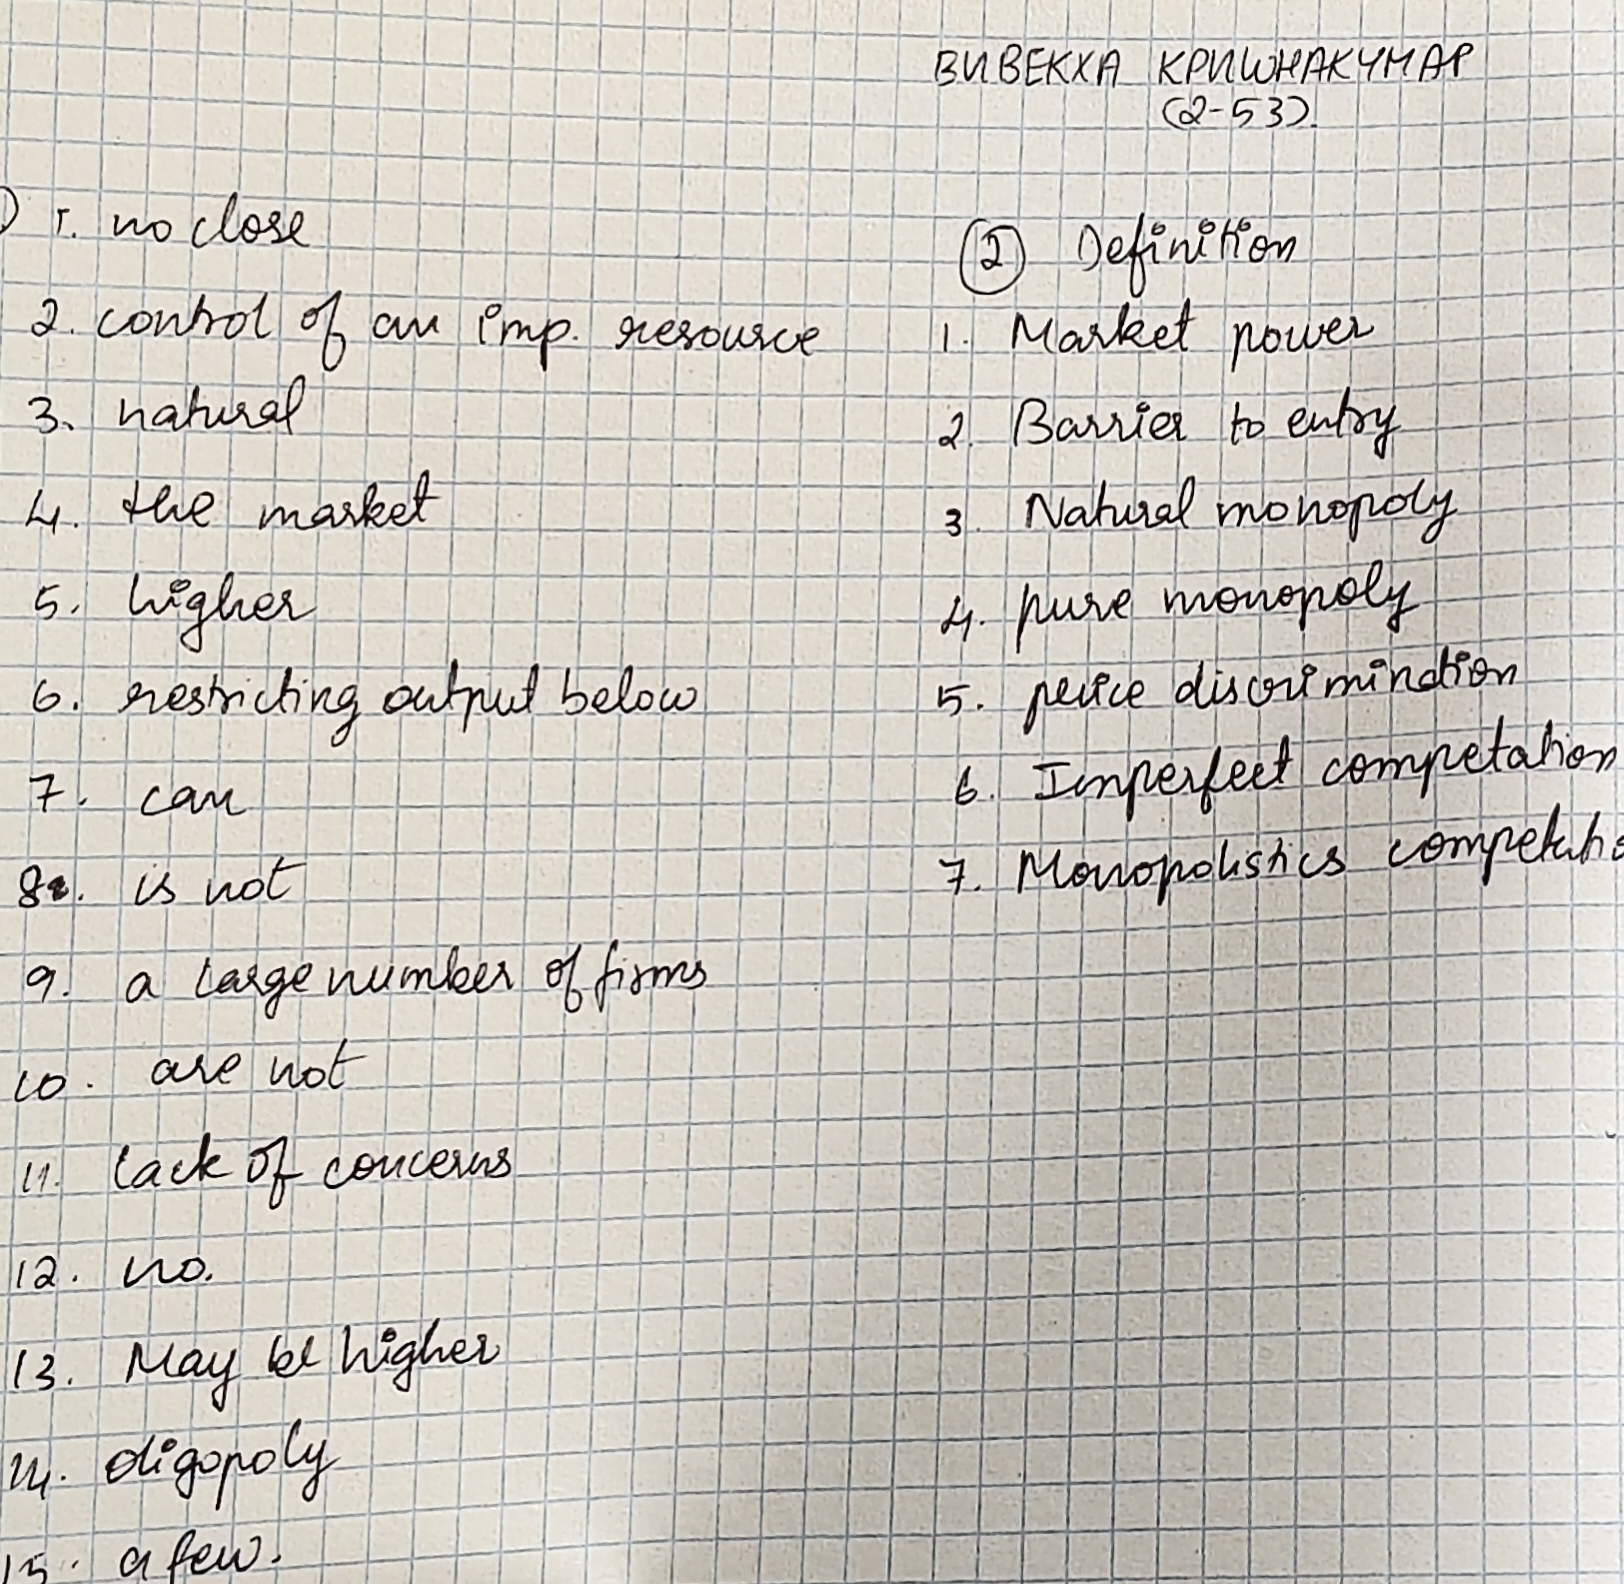 ВИВЕКХА КРИШНАКУМАР
(2-53).
) 1. no close
2. control of an imp. resource
3. natural
4. the market
5. higher
6. restricting output below
7. can
8. is not
9. a large number of firms
10. are not
11. lack of concerns
12. no.
13. May be higher
14. oligopoly
15. a few.
② Definition
1. Market power
2. Barrier to entry
3. Natural monopoly
4. pure monopoly
5. price discrimination
6. Imperfect competation
7. Monopolistics competatio